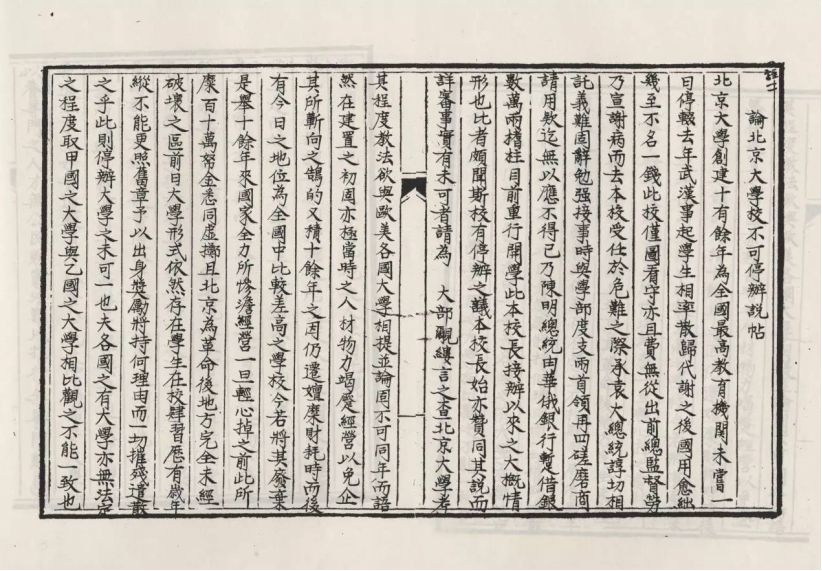 論北京大學校不可停辦説帖
北京大學創建十有餘年為全國最高教育機関未嘗一
日停輟去年武漢事起學生相率散歸代謝之後國用愈絀
幾至不名一錢此校僅圖看守亦且費無從出前總監督勞
乃宣謝病而去本校受任於危難之際承袁大總統諄切相
託義難固辭勉强接事時與學部度支兩首領再四磋磨商
請用欵迄無以應不得已乃陳明總統由華俄銀行暫借銀
數萬兩搘拄目前重行開學此本校長接辦以來之大概情
形也比者頗聞斯校有停辦之議本校長始亦贊同其説而
詳審事實有未可者請為 大部覼縷言之查北京大學考
其程度教法欲與歐美各國大學相提並論固不可同年而語
然在建置之初固亦極當時之人材物力竭蹷經營以免企
其所嚮向之鵠的又積十餘年之因仍遷嬗糜財耗時而後
有今日之地位為全國中比較差高之學校今若將其廢棄
是舉十餘年來國家全力所慘澹經營一旦輕心掉之前此所
糜百十萬帑金悉同虛擲且北京為革命後地方完全未經
破壞之區前日大學形式依然存在學生在校肄習歷有歲年
縱不能更照舊章予以出身奬勵將持何理由而一切摧殘遣散
之乎此則停辦大學之未可一也夫各國之有大學亦無法定
之程度取甲國之大學與乙國之大學相比觀之不能一致也